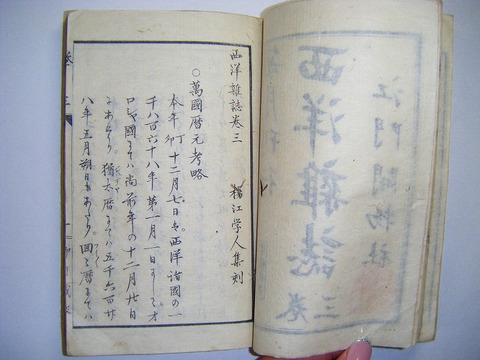 江門開物社
西洋雜誌
三巻
西洋雜誌巻三
楊江学人集刻
○萬國暦元考略
本年丁卯十二月七日ハ西洋諸國の一
千八百六十八年第一月一日にしてオ
ロシヤ國にてハ尚前年の十二月廿日
にあたり猶太暦にてハ五千六百廿
八年五月朔日にあたり回々暦にてハ